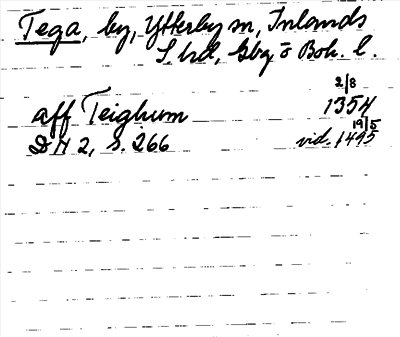 Tega, by, Ytterby sn, Inlands
S. hd, Gbg o Boh. l.
2/8
aff Teighum 1354
19/5
DN 2, s. 266 vid. 1495